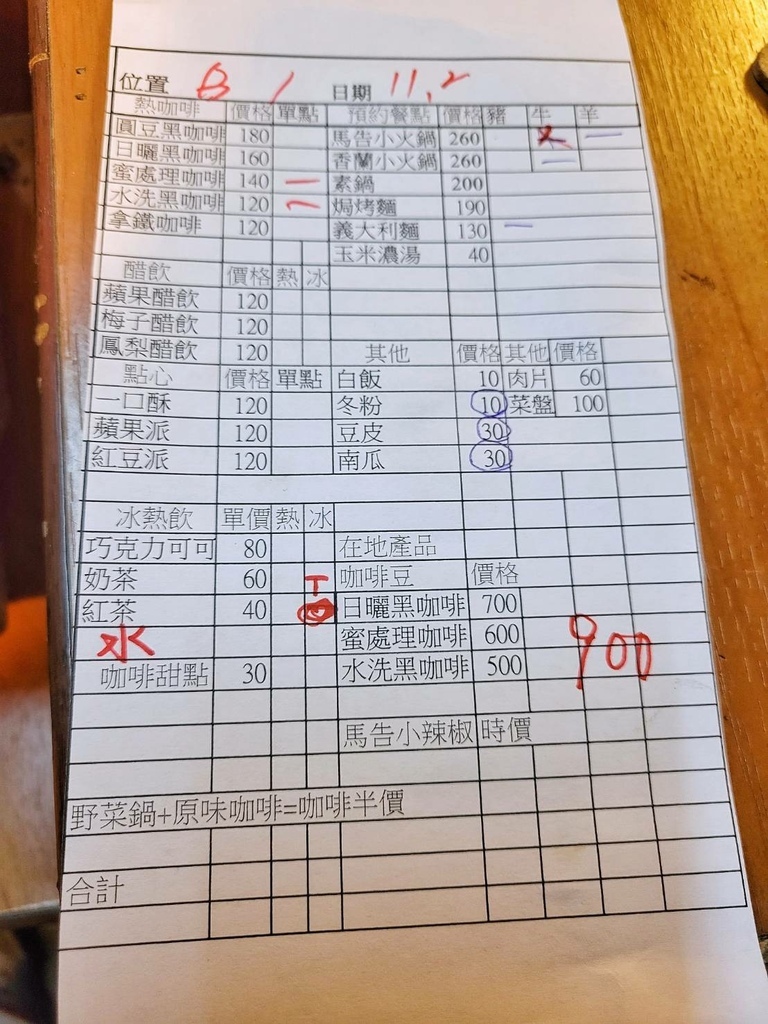 位置 B 1 日期 11.2
熱咖啡 價格 單點 預約餐點 價格 豬 牛 羊
圓豆黑咖啡 180 馬告小火鍋 260
日曬黑咖啡 160 香蘭小火鍋 260
蜜處理咖啡 140 一 素鍋 200
水洗黑咖啡 120 一 焗烤麵 190
拿鐵咖啡 120 義大利麵 130 一
玉米濃湯 40
醋飲 價格 熱 冰
蘋果醋飲 120
梅子醋飲 120
鳳梨醋飲 120 其他 價格 其他 價格
點心 價格 單點 白飯 10 肉片 60
一口酥 120 冬粉 10 菜盤 100
蘋果派 120 豆皮 30
紅豆派 120 南瓜 30
冰熱飲 單價 熱 冰
巧克力可可 80 在地產品
奶茶 60 咖啡豆 價格
紅茶 40 日曬黑咖啡 700
水 蜜處理咖啡 600 900
咖啡甜點 30 水洗黑咖啡 500
馬告小辣椒 時價
野菜鍋+原味咖啡=咖啡半價
合計